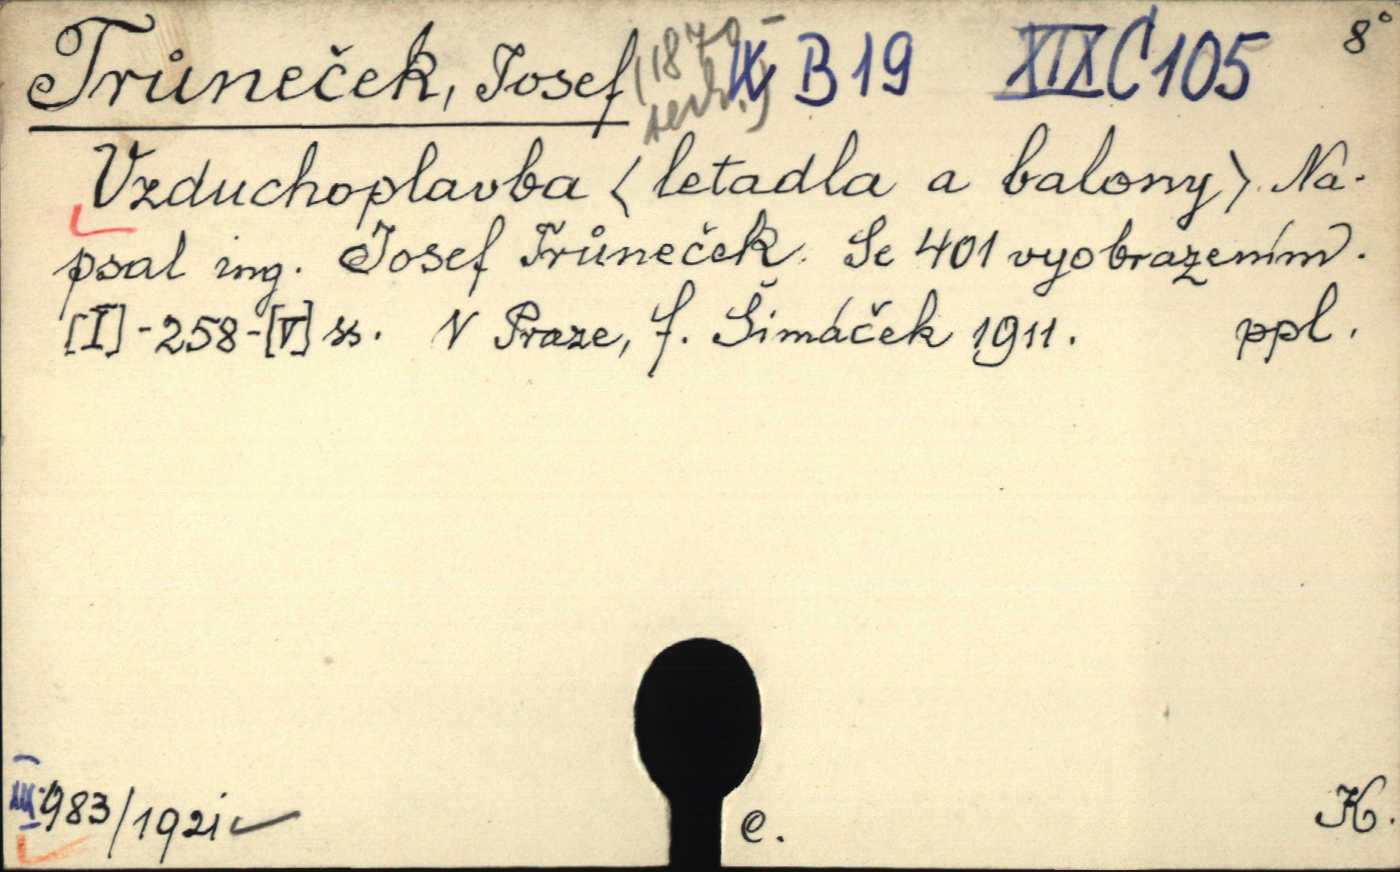 Trůneček, Josef (1870- IX B 19 XIX C 105 8°
Vzduchoplavba (letadla a balony). Na-
psal ing. Josef Trůneček. Se 401 vyobrazením.
[I]-258-[V] ss. V Praze, f. Šimáček 1911. ppl.
983/1921
e. K.